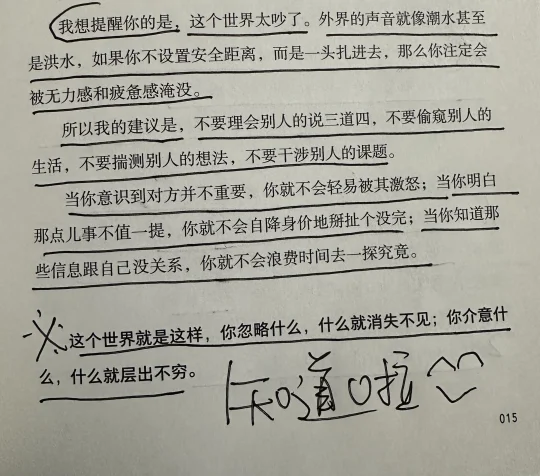 我想提醒你的是，这个世界太吵了。外界的声音就像潮水甚至
是洪水，如果你不设置安全距离，而是一头扎进去，那么你注定会
被无力感和疲惫感淹没。
所以我的建议是，不要理会别人的说三道四，不要偷窥别人的
生活，不要揣测别人的想法，不要干涉别人的课题。
当你意识到对方并不重要，你就不会轻易被其激怒；当你明白
那点儿事不值一提，你就不会自降身价地掰扯个没完；当你知道那
些信息跟自己没关系，你就不会浪费时间去一探究竟。
这个世界就是这样，你忽略什么，什么就消失不见；你介意什
么，什么就层出不穷。
知道啦
015